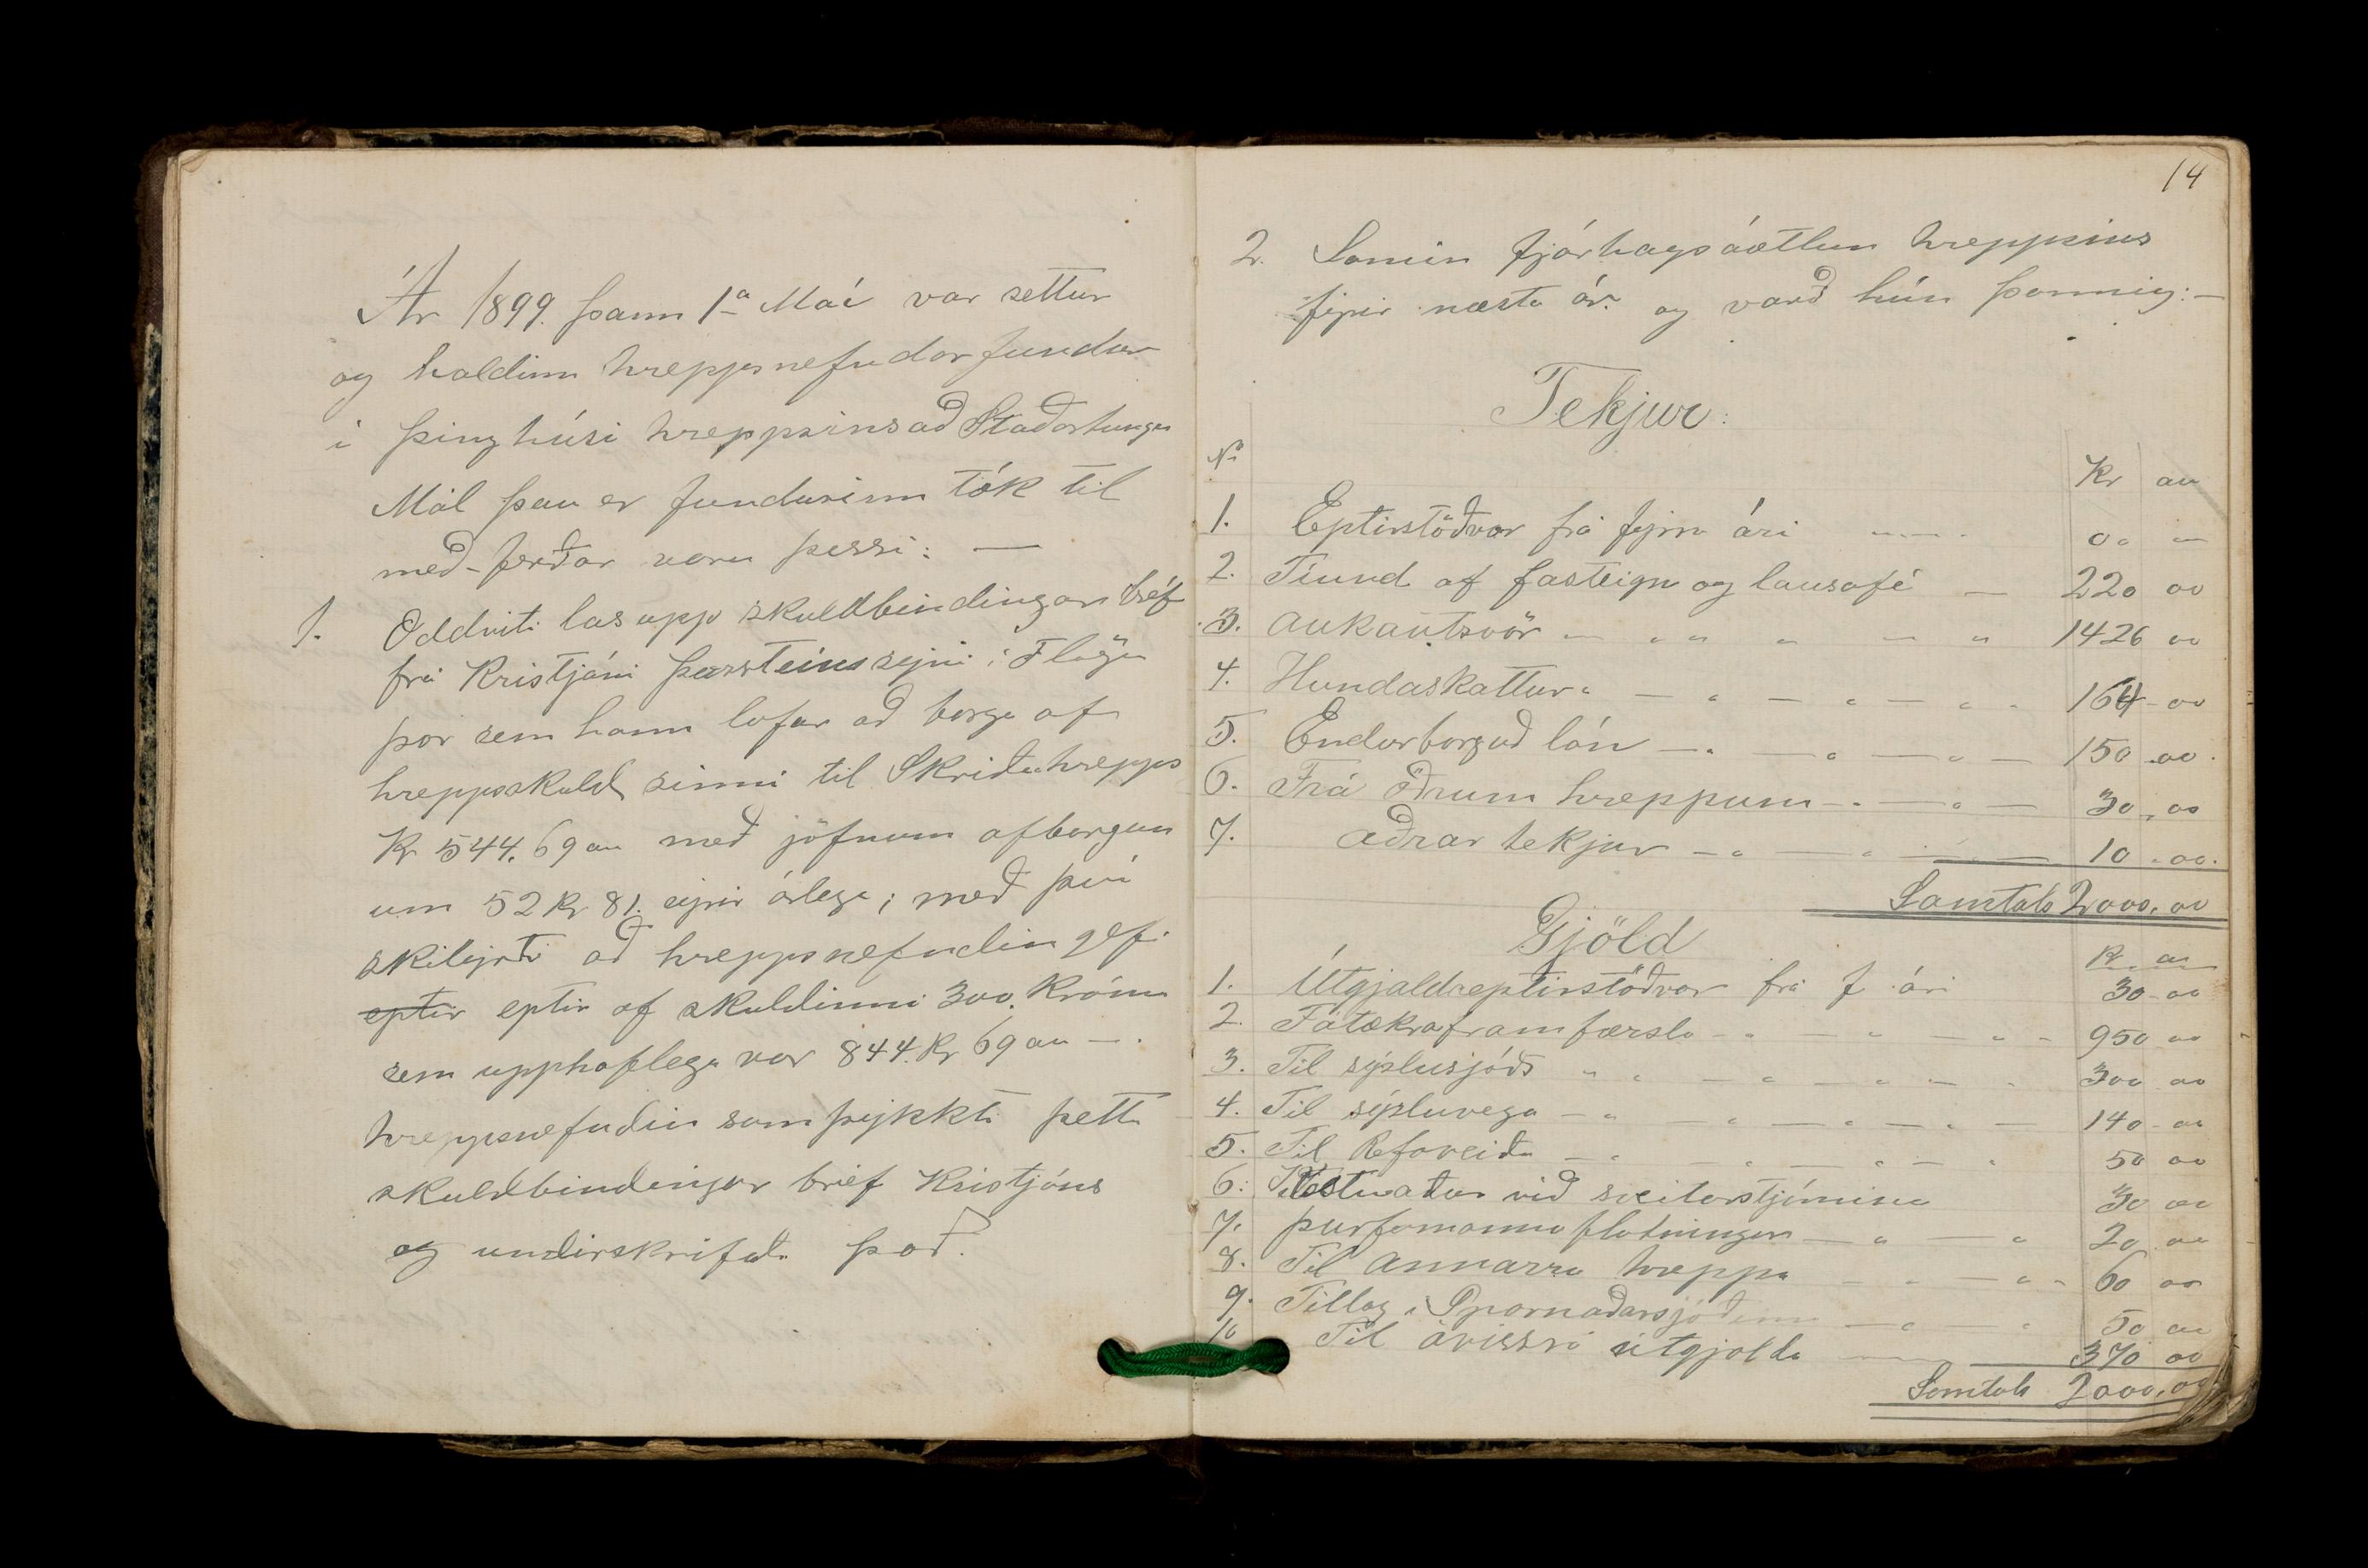 Ár 1899. þann 1a Maí var settur
og haldinn hreppsnefndar fundur
í þinghúsi hreppsins að Staðartungu
Mál þau er fundurinn tók til
með-ferðar voru þessi: —
1. Oddviti las upp skuldbindingar bréf
frá Kristjáni Þorsteinssyni í Flögu
þar sem hann lofar að borga af
hreppsskuld sinni til Skriðuhrepps
Kr 544.69 au með jöfnum afborgun
um 52 Kr 81. eyrir árlega; með því
skilyrði að hreppsnefndin gefi
eptir eptir af skuldinni 300. Krónur
sem upphaflega var 844. Kr 69 au —.
hreppsnefndin samþykkti þetta
skuldbindingar brief Kristjáns
og undirskrifaði það.
14
2. Samin fjárhagsáætlun hreppsins
fyrir næsta ár. og varð hún þannig: —
Tekjur:
No Kr au
1. Eptirstöðvar frá fyrra ári 00 "
2. Tíund af fasteign og lausafé — 220 00
3. Aukaútsvör — " " " — " 1426 00
4. Hundaskattur " — " — " — " " 164 - 00
5. Endurborguð lán — " — " — " — 150 . 00.
6. Frá öðrum hreppum — " — " — 30 " 00
7. aðrar tekjur — " — " — 10 . 00.
Samtals 2000.00
Gjöld
Kr au
1. Útgjaldaeptirstöðvar frá f ári 30 - 00
2. Fátækraframfærsla — " — " — " - 950 00
3. Til sýslusjóðs " " — " — " — " 300 00
4. Til sýsluvega — " — " — " — " — 140 - 00
5. Til Refaveiða — " — " — " — " 50 00
6. Kostnaður við sveitarstjórnina 30 00
7. þurfamanna flutningur — " — " 20 00
8. Til annarra hreppa — " — " - 60 00
9. Tillag í Búnaðarsjóðinn — " — " 50 00
10 Til óvissra útgjalda 370 00
Samtals 2000.00